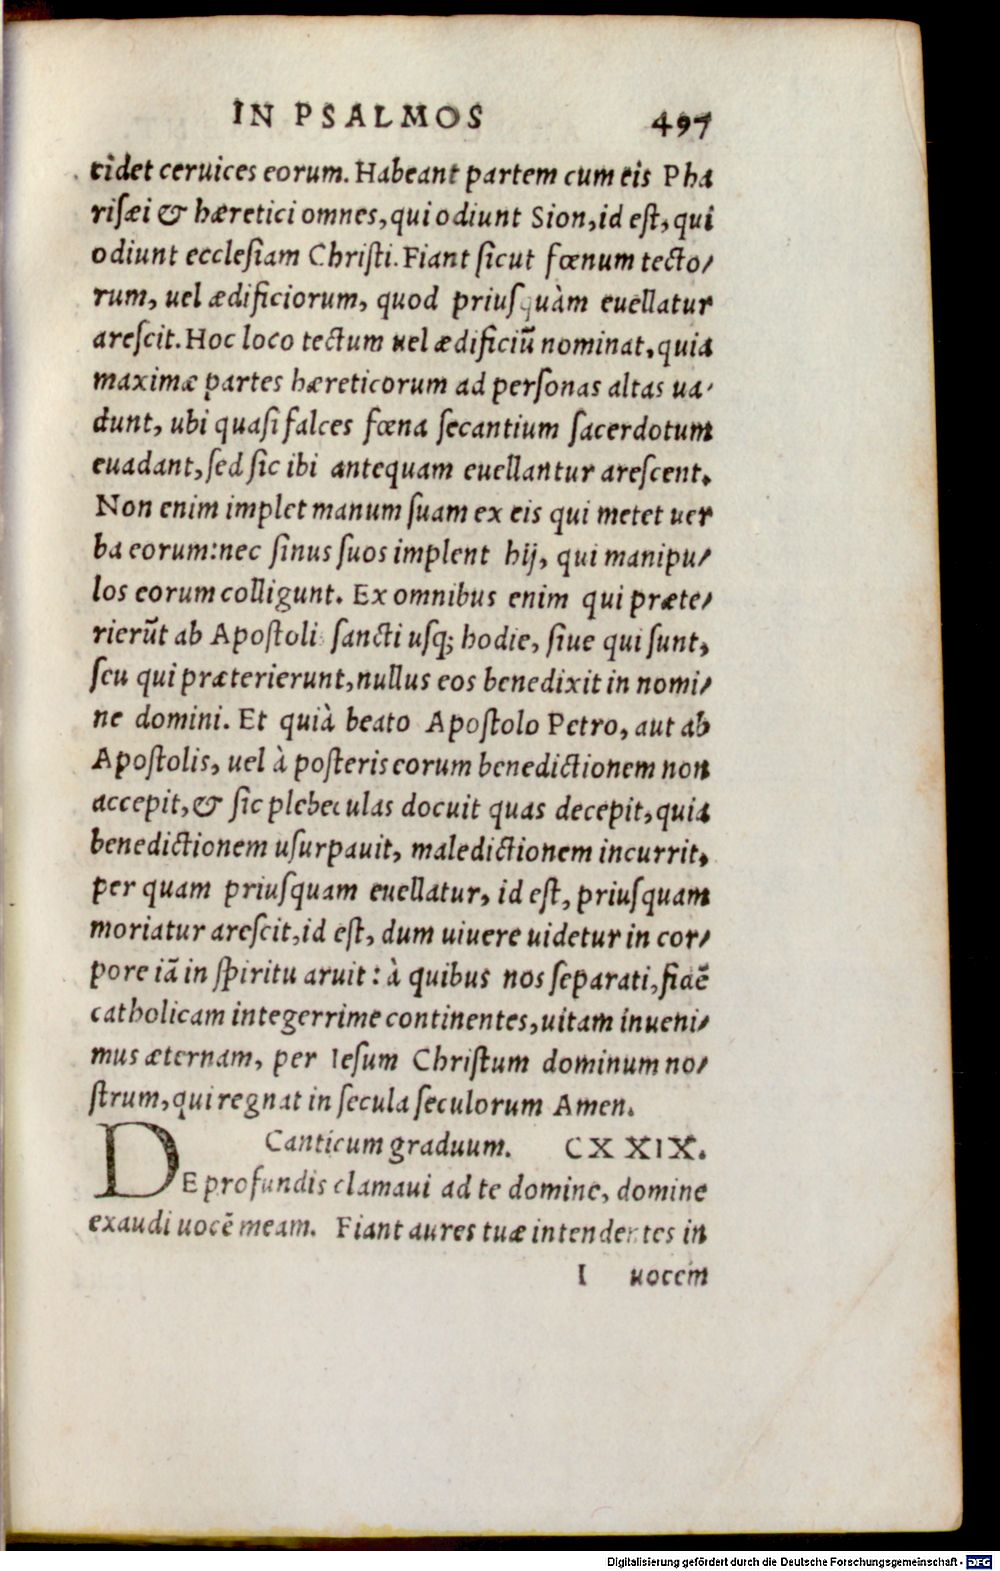 IN PSALMOS 497
cidet ceruices eorum. Habeant partem cum eis Pha
risæi & hæretici omnes, qui odiunt Sion, id est, qui
odiunt ecclesiam Christi. Fiant sicut fœnum tecto/
rum, uel ædificiorum, quod priusquàm euellatur
arescit. Hoc loco tectum uel ædificiũ nominat, quia
maximæ partes hæreticorum ad personas altas ua/
dunt, ubi quasi falces fœna secantium sacerdotum
euadant, sed sic ibi antequam euellantur arescent.
Non enim implet manum suam ex eis qui metet uer
ba eorum: nec sinus suos implent hij, qui manipu/
los eorum colligunt. Ex omnibus enim qui præte/
rierũt ab Apostoli sancti usq; hodie, siue qui sunt,
seu qui præterierunt, nullus eos benedixit in nomi/
ne domini. Et quià beato Apostolo Petro, aut ab
Apostolis, uel à posteris eorum benedictionem non
accepit, & sic plebeculas docuit quas decepit, quia
benedictionem usurpauit, maledictionem incurrit,
per quam priusquam euellatur, id est, priusquam
moriatur arescit, id est, dum uiuere uidetur in cor/
pore iã in spiritu aruit: à quibus nos separati, fidẽ
catholicam integerrime continentes, uitam inueni/
mus æternam, per Iesum Christum dominum no/
strum, qui regnat in secula seculorum Amen.
Canticum graduum. CXXIX.
DE profundis clamaui ad te domine, domine
exaudi uocẽ meam. Fiant aures tuæ intendentes in
I uocem
Digitalisierung gefördert durch die Deutsche Forschungsgemeinschaft - DFG